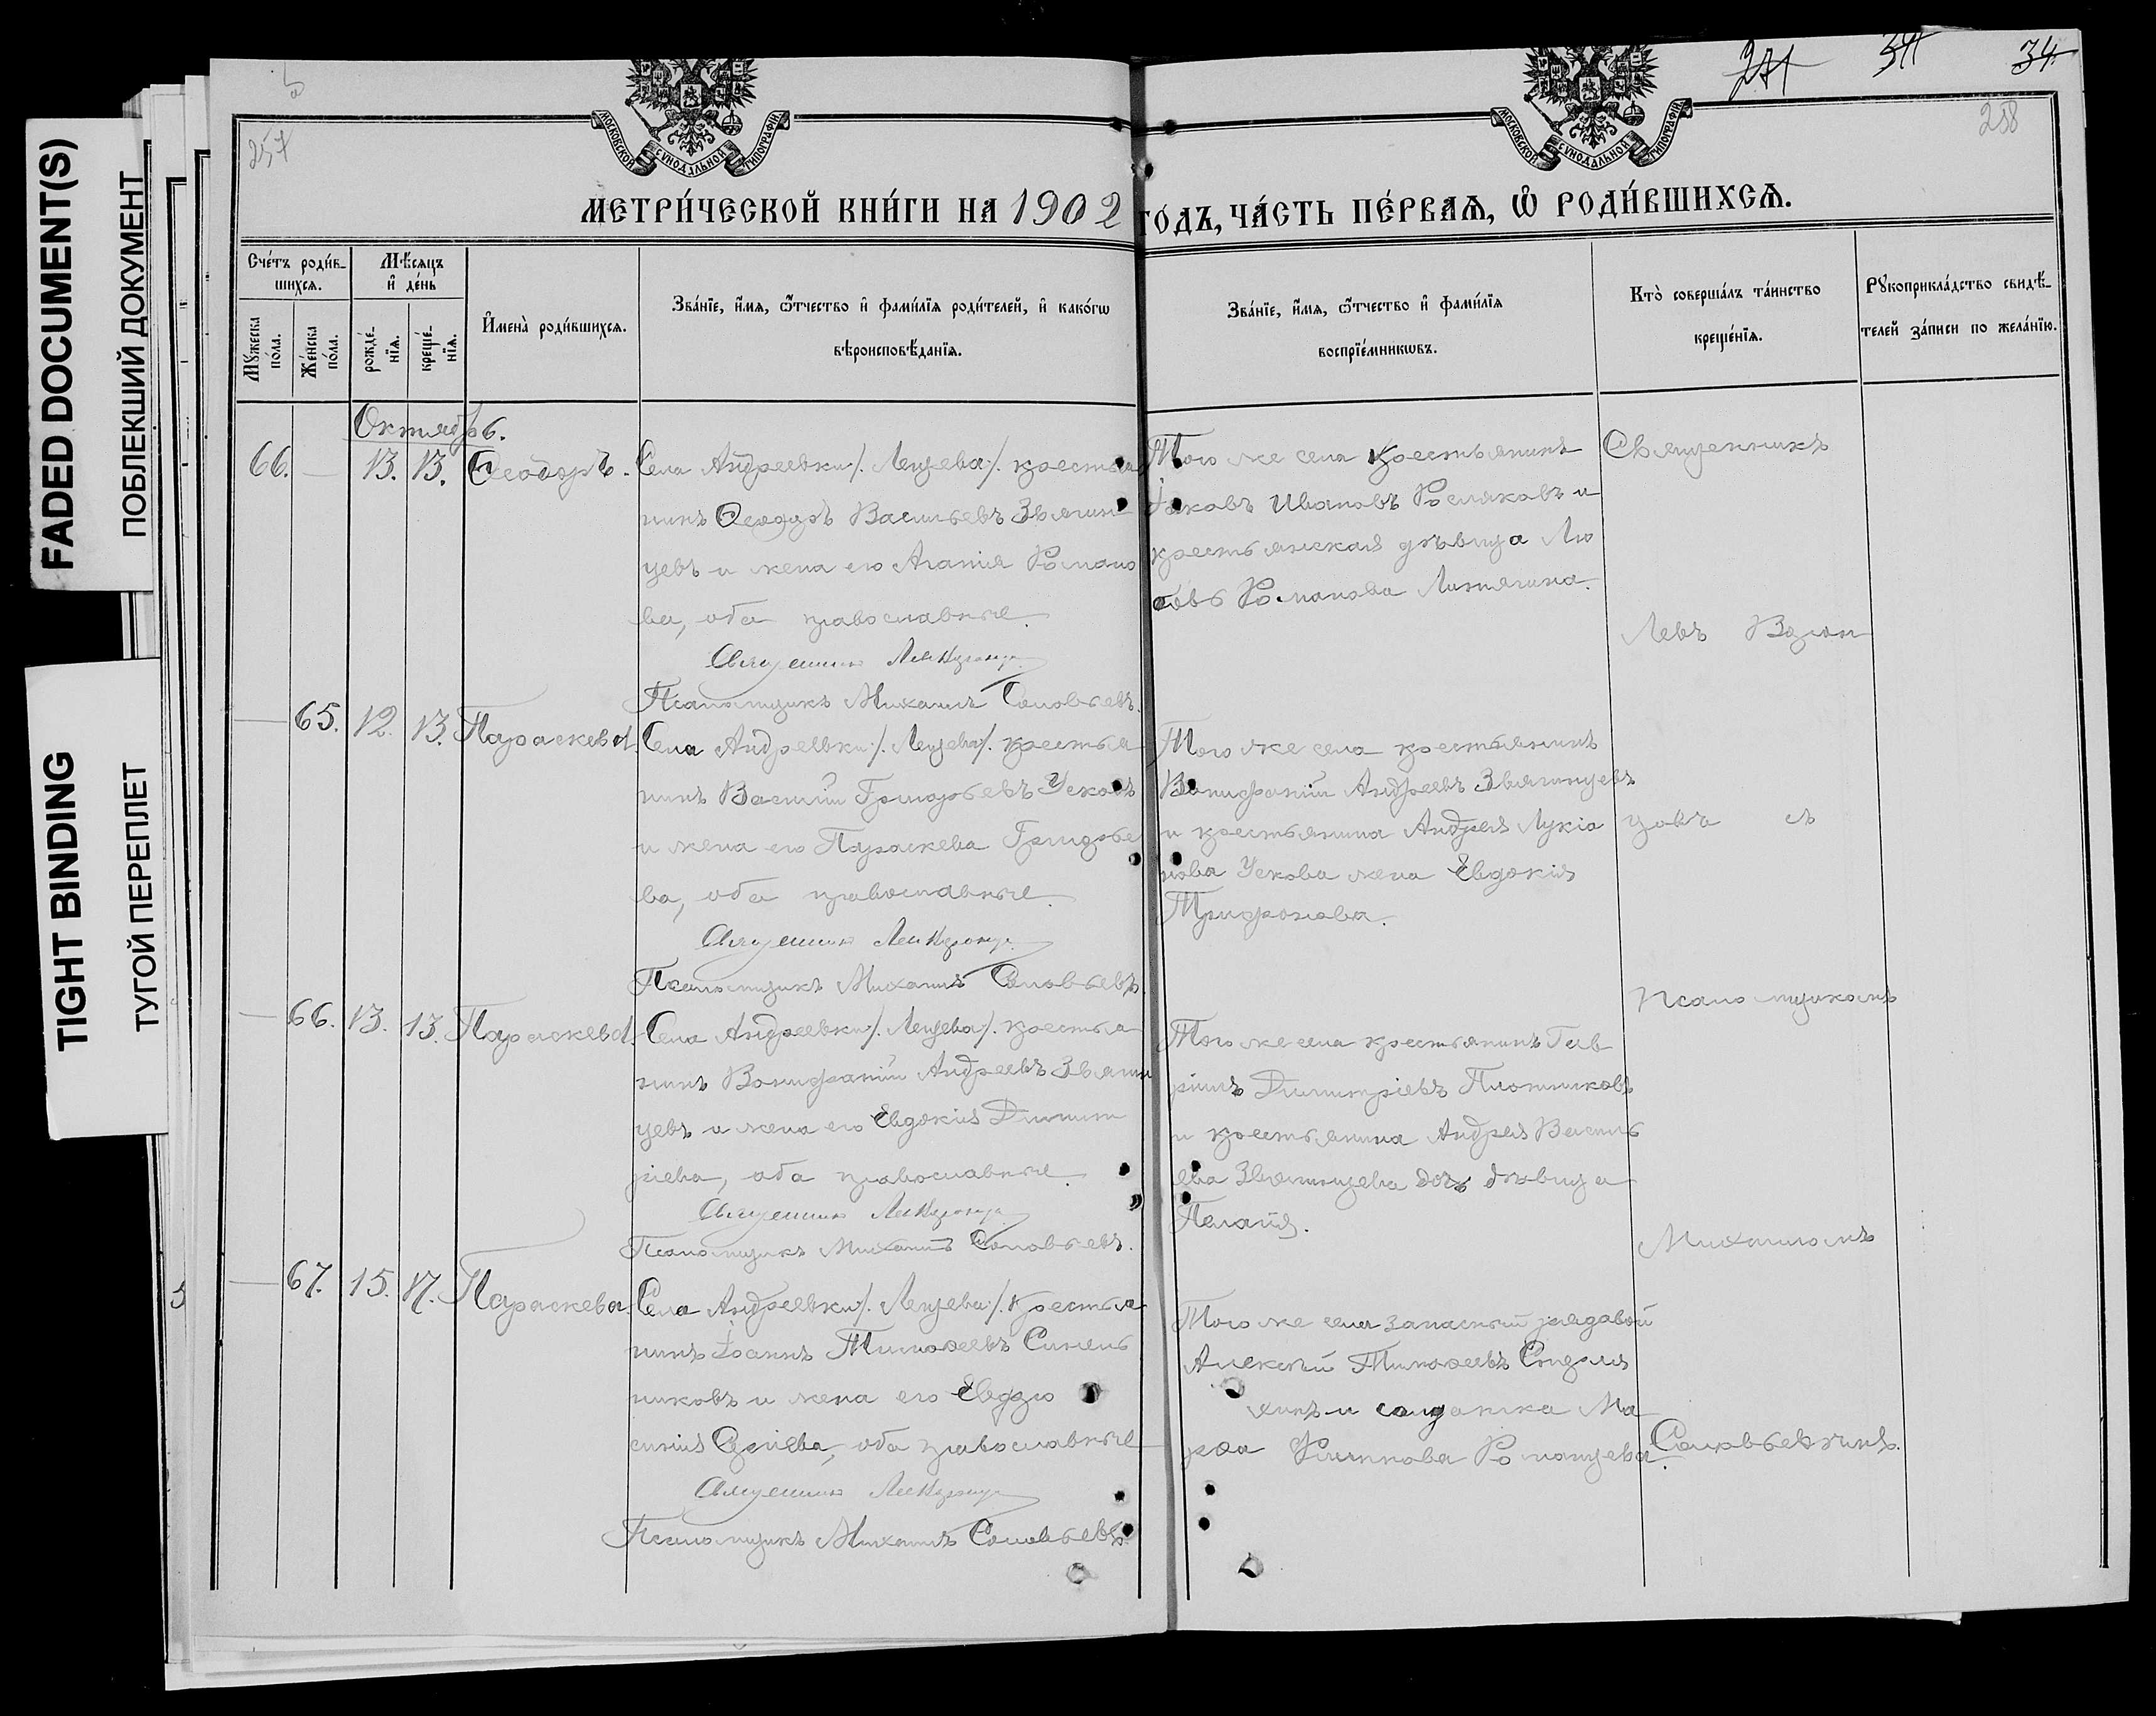 FADED DOCUMENT(S)
ПОБЛЕКШИЙ ДОКУМЕНТ
TIGHT BINDING
ТУГОЙ ПЕРЕПЛЕТ
271 34 34
257
258
МОСКОВСКОЙ СѴНОДАЛЬНОЙ ТИПОГРАФІИ
МОСКОВСКОЙ СѴНОДАЛЬНОЙ ТИПОГРАФІИ
МЕТРИ́ЧЕСКОЙ КНИ́ГИ НА 1902 ГО́ДЪ, ЧА́СТЬ ПЕ́РВАѦ, Ѡ҆ РОДИ́ВШИХСѦ.
Сче́тъ роди́в-
шихсѧ.
Мꙋ́жеска
по́ла.
Же́нска
по́ла.
Мѣ́сѧцъ
и҆ де́нь
рожде́-
нїѧ.
креще́-
нїѧ.
И҆мена̀ роди́вшихсѧ.
Зва́нїе, и҆́мѧ, ѻ҆́тчество и҆ фами́лїѧ роди́телей, и҆ како́гѡ
вѣроисповѣ́данїѧ.
Зва́нїе, и҆́мѧ, ѻ҆́тчество и҆ фами́лїѧ
воспрїе́мникѡвъ.
Кто̀ соверша́лъ та́инство
креще́нїѧ.
Рꙋкоприкла́дство свидѣ́-
телей за́писи по жела́нїю.
Октябрь.
66. — 13. 13. Ѳеодоръ.
Села Андреевки /. Лещева /. крестья
нинъ Ѳеодоръ Васильевъ Звягин
цевъ и жена его Агапія Романо
ва, оба православные.
Священникъ Левъ
Псаломщикъ Михаилъ Соловьевъ.
Того же села крестьянинъ
Іаковъ Ивановъ Росляковъ и
крестьянская дѣвица Лю
бовь Романова
Священникъ
Левъ
— 65. 12. 13. Параскева.
Села Андреевки /. Лещева /. крестья
нинъ Василій Григорьевъ Усковъ
и жена его Параскева Григорье
ва, оба православные.
Священникъ Левъ
Псаломщикъ Михаилъ Соловьевъ.
Того же села крестьянинъ
Вонифатій Андреевъ Звягинцевъ
и крестьянина Андрея Лукіа
нова Ускова жена Евдокія
Трифонова.
съ
— 66. 13. 13. Параскева.
Села Андреевки /. Лещева /. крестья
нинъ Вонифатій Андреевъ Звягин
цевъ и жена его Евдокія Димит
ріева, оба православные.
Священникъ Левъ
Псаломщикъ Михаилъ Соловьевъ.
Того же села крестьянинъ Гав
ріилъ Димитріевъ Плотниковъ
и крестьянина Андрея Василь
ева Звягинцева дочь дѣвица
Пелагія.
псаломщикомъ
Михаиломъ
— 67. 15. 17. Параскева.
Села Андреевки /. Лещева /. крестья
нинъ Іоаннъ Тимоѳеевъ Синель
никовъ и жена его Евдо
оба православные
Священникъ Левъ
Псаломщикъ Михаилъ Соловьевъ.
Того же села запасный рядовой
Алексѣй Тимоѳеевъ
и солдатка Ма
рѳа
Соловьевымъ.